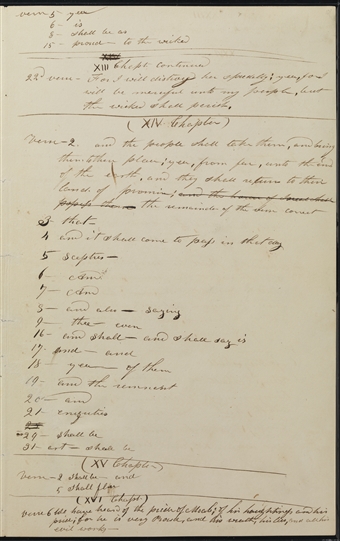 verse 5- yea
6 - is
8 - shall be as
15 - proud - to the wicked
XIII Chapt. continued
22d verse - For I will destroy her speedily; yea, for I
will be merciful unto my people, but
the wicked shall perish.
(XIV Chapter)
Verse - 2. and the people shall take them, and bring
them to their place; yea, from far, unto the end
of the earth, and they shall return to their
lands of promise; and the house of Israel shall
possess them the remainder of the verse correct
3 - that -
4 and it shall come to pass in that day
5 scepters -
6 -
7 - And
8 - and also - saying
9 - thee - even
16 - and shall - and shall say is
17 and - and
18 - yea - of them
19 - and the remnant
20 - and
21 - iniquities
24 - shall be
31 - art - shall be
(XV Chapter)
verse - 2 shall be - and
5 shall flee
(XVI Chapt)
verse 6 We have heard of the pride of Moab; of his haughtiness and his
pride, for he is very proud, and his wrath, his lies, and all his
evil works -